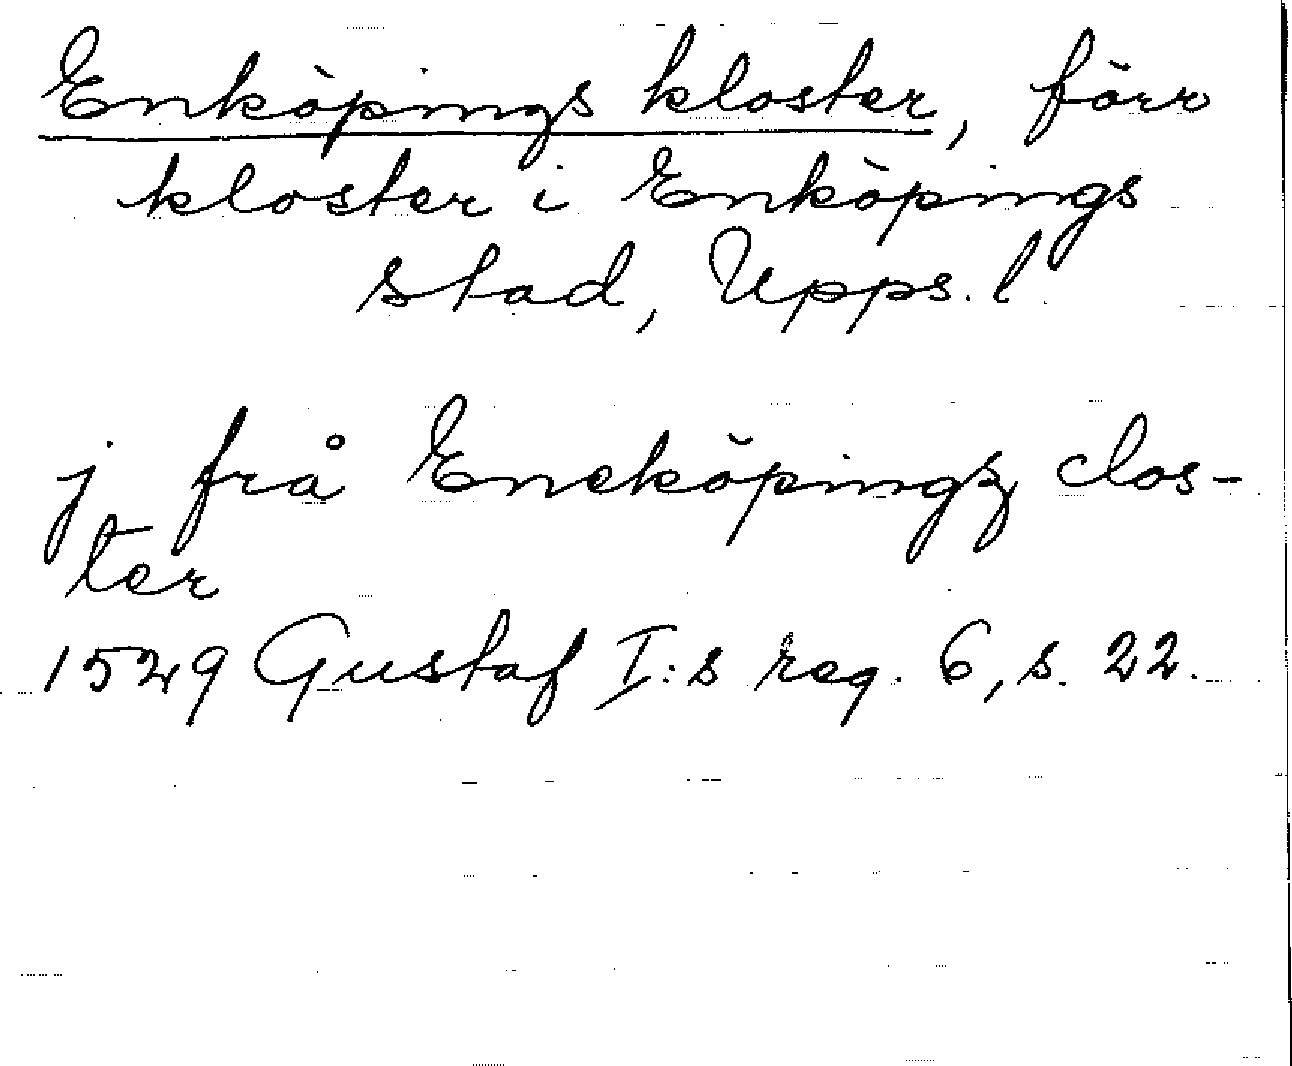 Enköpings kloster, förr
kloster i Enköpings
stad, Upps. l.
j frå Eneköpingz clos-
ter
1529 Gustaf I:s reg. 6, s. 22.